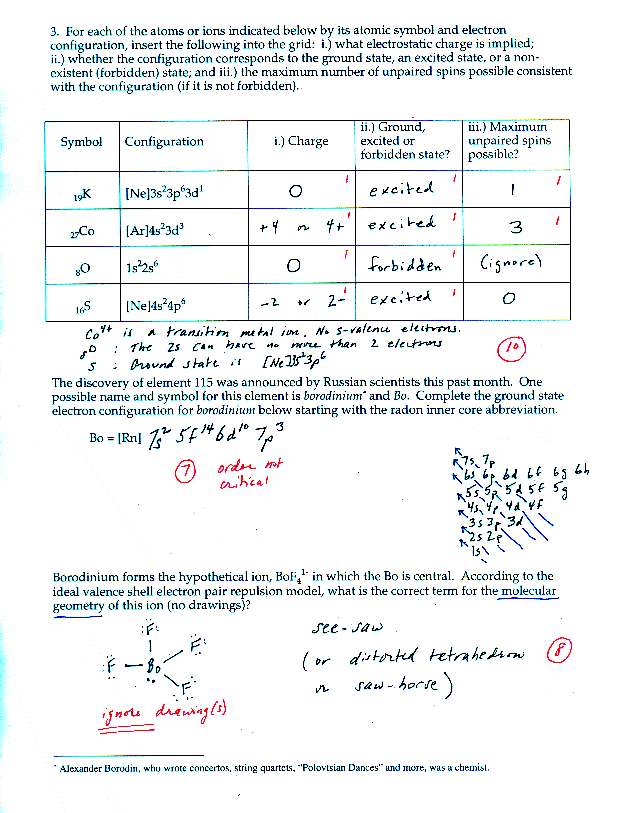 3. For each of the atoms or ions indicated below by its atomic symbol and electron
configuration, insert the following into the grid: i.) what electrostatic charge is implied;
ii.) whether the configuration corresponds to the ground state, an excited state, or a non-
existent (forbidden) state; and iii.) the maximum number of unpaired spins possible consistent
with the configuration (if it is not forbidden).
Symbol Configuration i.) Charge ii.) Ground, excited or forbidden state? iii.) Maximum unpaired spins possible?
₁₉K [Ne]3s²3p⁶3d¹ 0 1 excited 1 1 1
₂₇Co [Ar]4s²3d³ +4 or 4+ 1 excited 1 3 1
₈O 1s²2s⁶ 0 1 forbidden 1 (ignore)
₁₆S [Ne]4s²4p⁶ -2 or 2- 1 excited 1 0
Co⁴⁺ is a transition metal ion. No s-valence electrons.
₈O : The 2s can have no more than 2 electrons
S : Ground state is [Ne]3s²3p⁶
10
The discovery of element 115 was announced by Russian scientists this past month. One
possible name and symbol for this element is borodinium* and Bo. Complete the ground state
electron configuration for borodinium below starting with the radon inner core abbreviation.
Bo = [Rn] 7s² 5f¹⁴ 6d¹⁰ 7p³
7 order not
critical
7s 7p
6s 6p 6d 6f 6g 6h
5s 5p 5d 5f 5g
4s 4p 4d 4f
3s 3p 3d
2s 2p
1s
Borodinium forms the hypothetical ion, BoF₄¹⁻ in which the Bo is central. According to the
ideal valence shell electron pair repulsion model, what is the correct term for the molecular
geometry of this ion (no drawings)?
:F:
:F — Bo F:
F:
ignore drawing(s)
see-saw
(or distorted tetrahedron
or saw-horse)
8
* Alexander Borodin, who wrote concertos, string quartets, "Polovtsian Dances" and more, was a chemist.